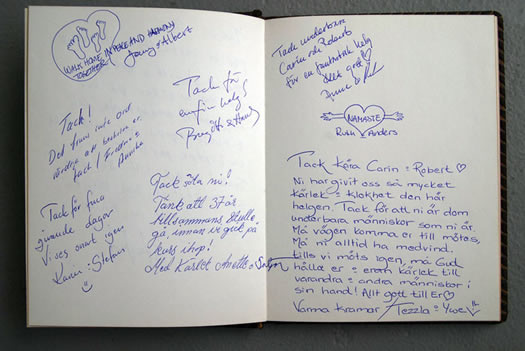 WALK HOME IN PEACE AND HARMONY
TOGETHER
Jenny & Albert
Tack!
Det finns inte ord
tack! Fredrik &
Annika
Tack för
en fin helg
Tack för fina
givande dagar
Vi ses snart igen
Karin & Stefan
Tack söta ni!
Tänk att 37 år
tillsammans skulle
gå innan vi gick på
kurs ihop!
Med Kärlek Anette &
Tack underbara
Carin och Robert
för en fantastisk helg
Allt gott
NAMASTE
Ruth Anders
Tack Kära Carin & Robert ♡
Ni har givit oss så mycket
kärlek & klokhet den här
helgen. Tack för att ni är dom
underbara människor som ni är
Må vägen komma er till mötes,
Må ni alltid ha medvind.
tills vi möts igen, må Gud
hålla er & eran kärlek till
varandra & andra människor i
sin hand! Allt gott till Er ♡
Varma Kramar / Tezzla & Ywe